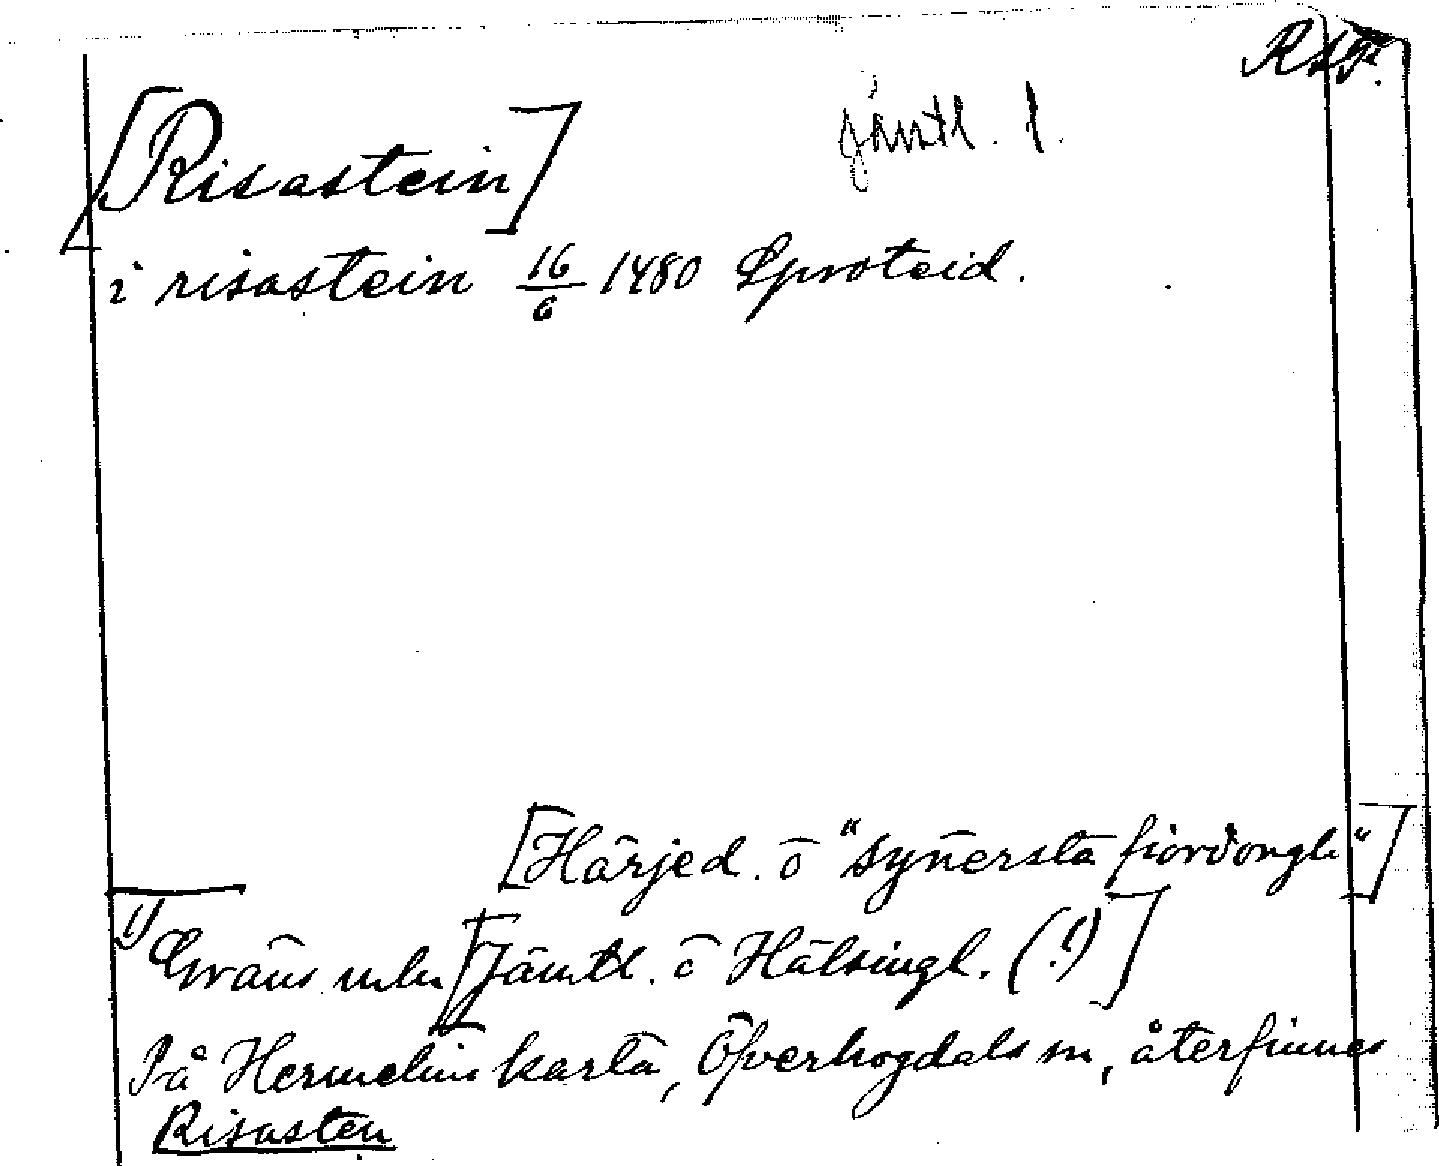 Jämtl. l.
[Risastein]
i risastein 16/6 1480 Sproteid.
[Härjed. o "synersta fiordongh"]
1) Gräns mln [Jämtl. o Hälsingl. (!)]
På Hermelins karta, Öfverhogdals sn, återfinnes
Risasten